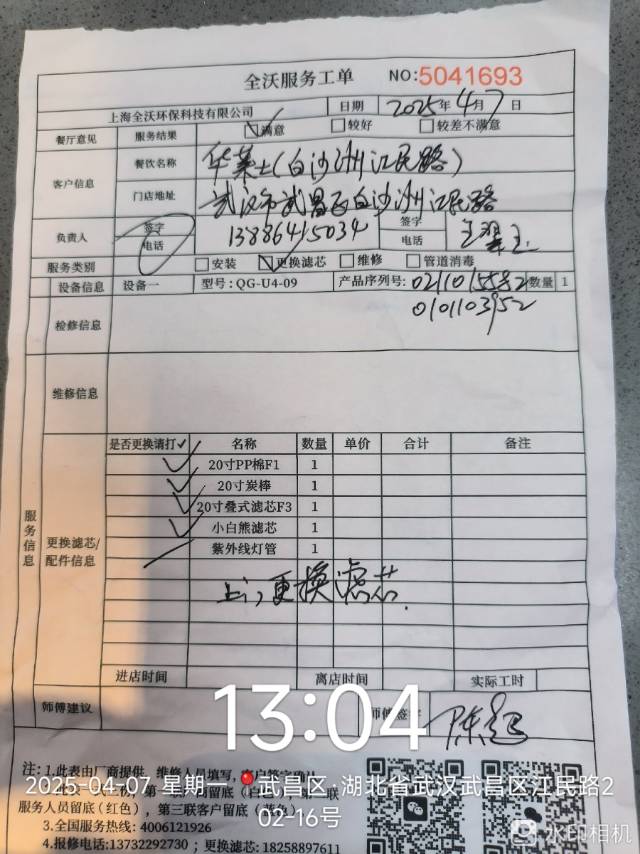 全沃服务工单 NO:5041693
上海全沃环保科技有限公司 日期 2025年4月7日
餐厅意见 服务结果 ✓满意 □较好 □较差不满意
客户信息 餐饮名称 华莱士(白沙洲江民路)
门店地址 武汉市武昌区白沙洲江民路
负责人 签字 电话 13886415034 签字 电话
服务类别 □安装 ✓更换滤芯 □维修 □管道消毒
设备信息 设备一 型号:QG-U4-09 产品序列号: 数量 1
0101103952
检修信息
维修信息
服务信息
更换滤芯/配件信息
是否更换请打✓ 名称 数量 单价 合计 备注
✓ 20寸PP棉F1 1
✓ 20寸炭棒 1
✓ 20寸叠式滤芯F3 1
✓ 小白熊滤芯 1
紫外线灯管 1
上门更换滤芯.
进店时间 离店时间 实际工时
师傅建议 师傅签字
13:04
注:1.此表由厂商提供,维修人员填写,
2025-04-07 星期一 武昌区·湖北省武汉武昌区江民路2
02-16号
服务人员留底(红色),第三联客户留底
3.全国服务热线:4006121926
4.报修电话:13732292730 ;更换滤芯:18258897611
水印相机